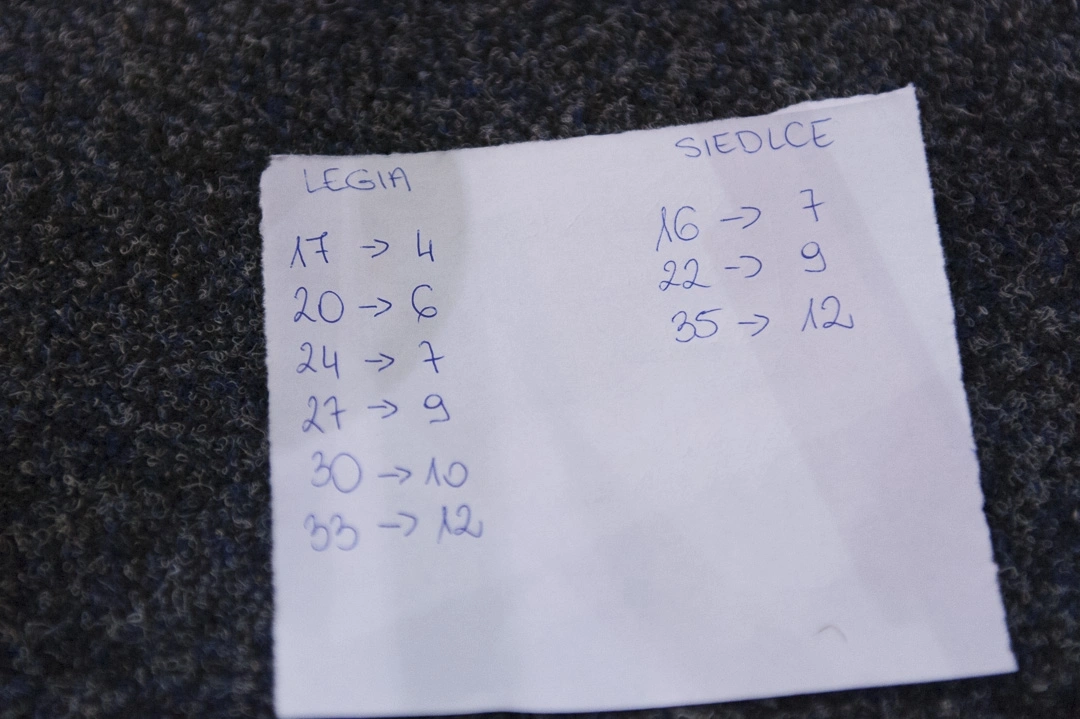 LEGIA
17 → 4
20 → 6
24 → 7
27 → 9
30 → 10
33 → 12
SIEDLCE
16 → 7
22 → 9
35 → 12